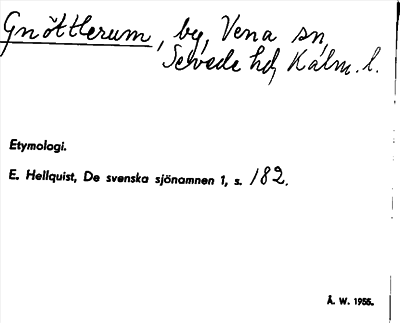 Gnöttlerum, by, Vena sn,
Sevede hd, Kalm. l.
Etymologi.
E. Hellquist, De svenska sjönamnen 1, s. 182.
Å. W. 1955.